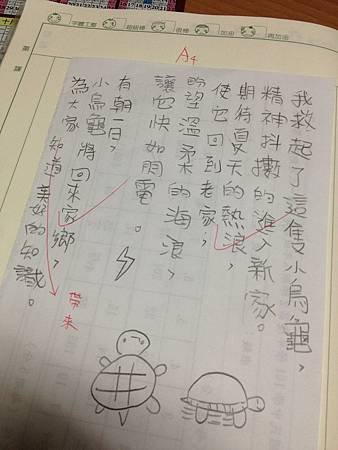 字體工整
超級棒
很棒
加油
再加油
A4
我救起了這隻小烏龜，
精神抖擻的進入新家。
期待夏天的熱浪，
使它回到老家，
盼望溫柔的海浪，
讓它快如閃電。
有朝一日，
小烏龜將回來家鄉，
為大家知道美好的知識。
帶來